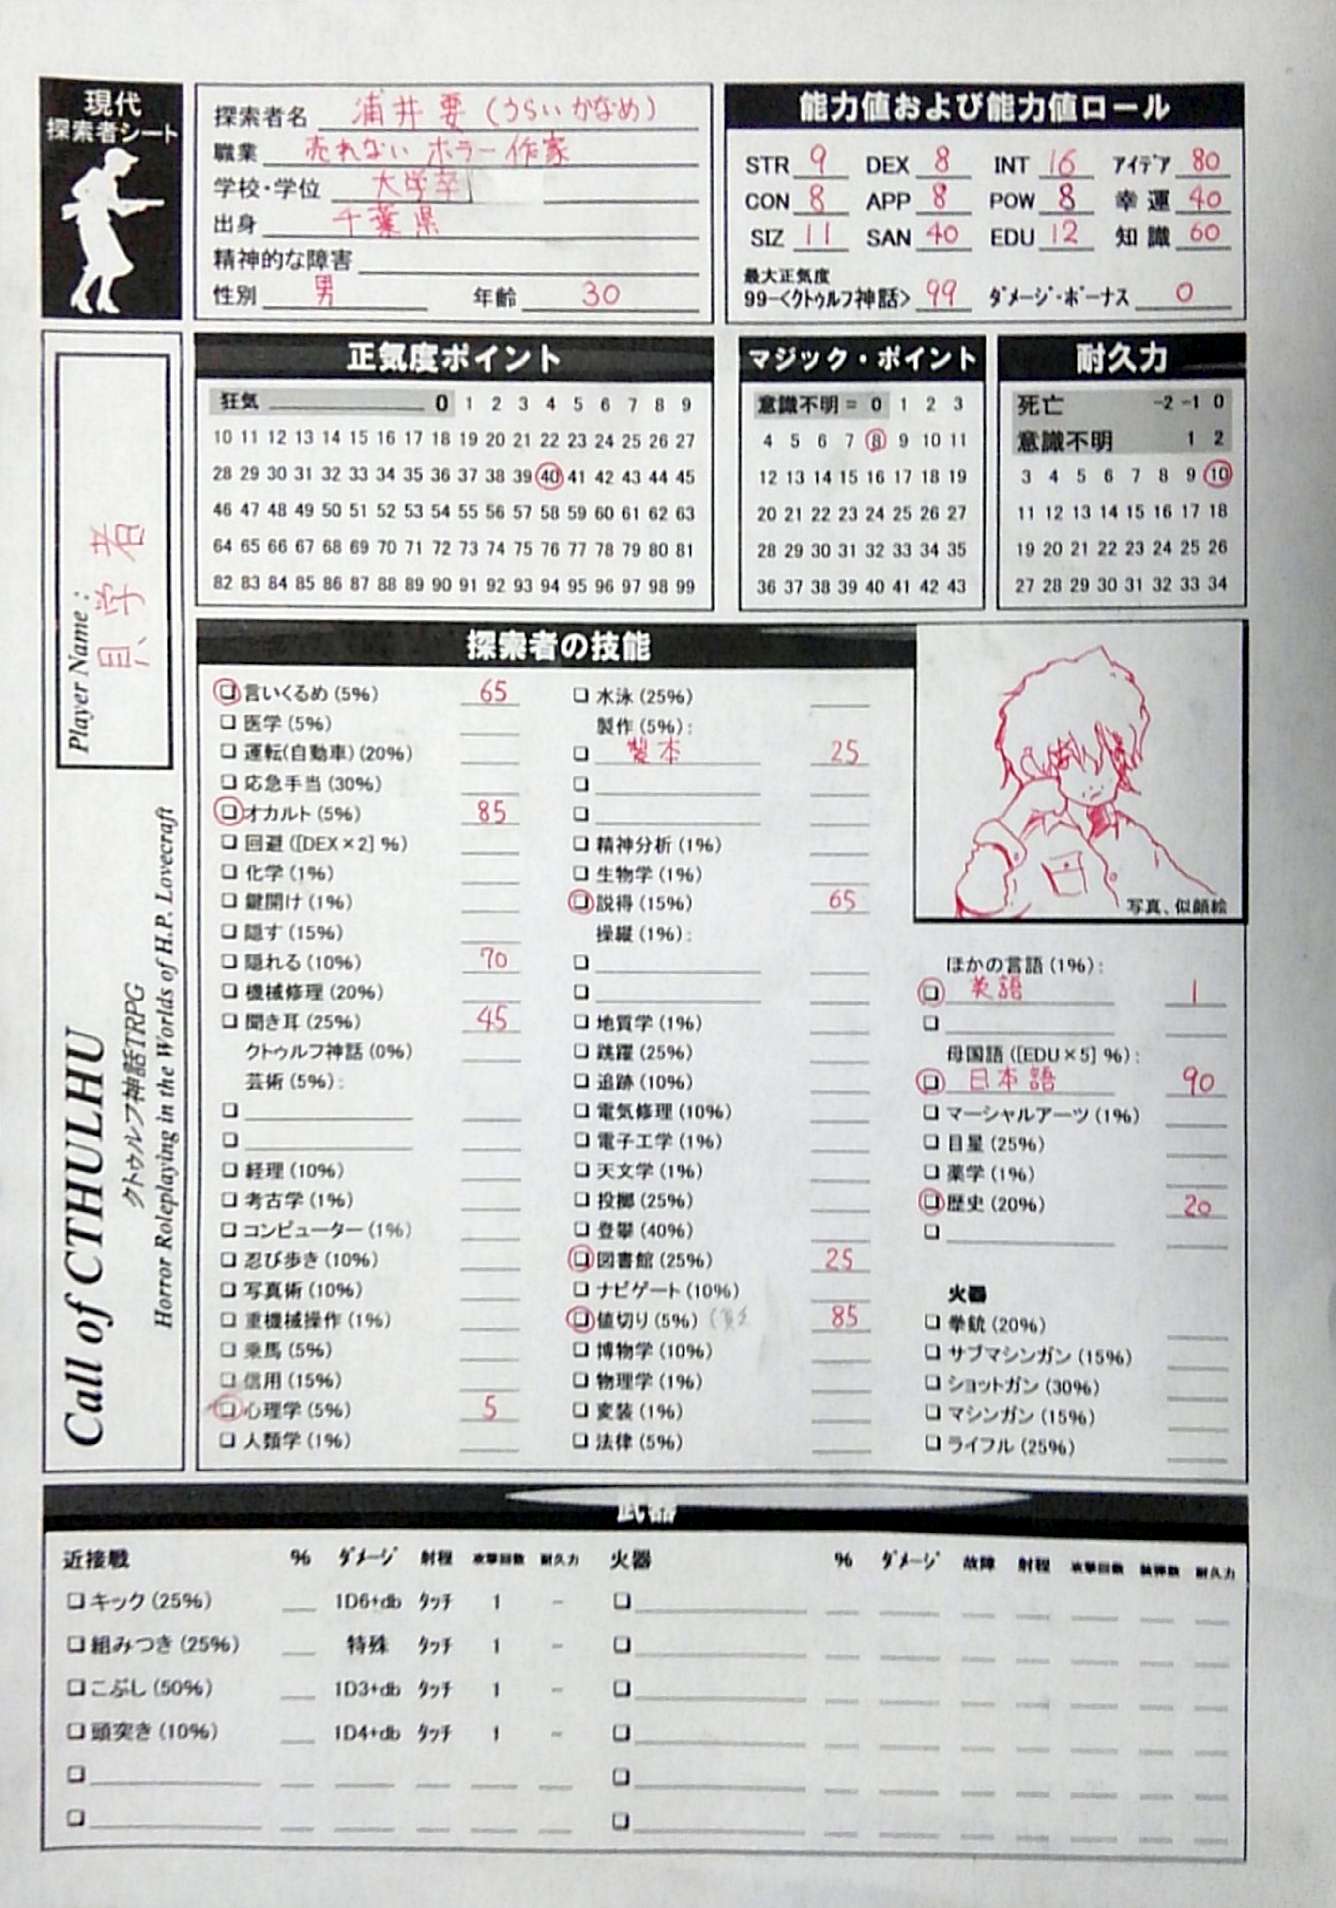 現代
探索者シート
探索者名 浦井要(うらいかなめ)
職業 売れないホラー作家
学校・学位 大学卒
出身 千葉県
精神的な障害
性別 男 年齢 30
能力値および能力値ロール
STR 9 DEX 8 INT 16 アイデア 80
CON 8 APP 8 POW 8 幸運 40
SIZ 11 SAN 40 EDU 12 知識 60
最大正気度
99-<クトゥルフ神話> 99 ダメージ・ボーナス 0
Player Name :
Call of CTHULHU
クトゥルフ神話TRPG
Horror Roleplaying in the Worlds of H.P. Lovecraft
正気度ポイント
狂気 0 1 2 3 4 5 6 7 8 9
10 11 12 13 14 15 16 17 18 19 20 21 22 23 24 25 26 27
28 29 30 31 32 33 34 35 36 37 38 39 40 41 42 43 44 45
46 47 48 49 50 51 52 53 54 55 56 57 58 59 60 61 62 63
64 65 66 67 68 69 70 71 72 73 74 75 76 77 78 79 80 81
82 83 84 85 86 87 88 89 90 91 92 93 94 95 96 97 98 99
マジック・ポイント
意識不明= 0 1 2 3
4 5 6 7 8 9 10 11
12 13 14 15 16 17 18 19
20 21 22 23 24 25 26 27
28 29 30 31 32 33 34 35
36 37 38 39 40 41 42 43
耐久力
死亡 -2 -1 0
意識不明 1 2
3 4 5 6 7 8 9 10
11 12 13 14 15 16 17 18
19 20 21 22 23 24 25 26
27 28 29 30 31 32 33 34
探索者の技能
言いくるめ(5%) 65
医学(5%)
運転(自動車)(20%)
応急手当(30%)
オカルト(5%) 85
回避([DEX×2]%)
化学(1%)
鍵開け(1%)
隠す(15%)
隠れる(10%) 70
機械修理(20%)
聞き耳(25%) 45
クトゥルフ神話(0%)
芸術(5%):
経理(10%)
考古学(1%)
コンピューター(1%)
忍び歩き(10%)
写真術(10%)
重機械操作(1%)
乗馬(5%)
信用(15%)
心理学(5%) 5
人類学(1%)
水泳(25%)
製作(5%):
製本 25
精神分析(1%)
生物学(1%)
説得(15%) 65
操縦(1%):
地質学(1%)
跳躍(25%)
追跡(10%)
電気修理(10%)
電子工学(1%)
天文学(1%)
投擲(25%)
登攀(40%)
図書館(25%) 25
ナビゲート(10%)
値切り(5%) 85
博物学(10%)
物理学(1%)
変装(1%)
法律(5%)
写真、似顔絵
ほかの言語(1%):
英語 1
母国語([EDU×5]%):
日本語 90
マーシャルアーツ(1%)
目星(25%)
薬学(1%)
歴史(20%) 20
火器
拳銃(20%)
サブマシンガン(15%)
ショットガン(30%)
マシンガン(15%)
ライフル(25%)
武器
近接戦 % ダメージ 射程 攻撃回数 耐久力
キック(25%) 1D6+db タッチ 1 -
組みつき(25%) 特殊 タッチ 1 -
こぶし(50%) 1D3+db タッチ 1 -
頭突き(10%) 1D4+db タッチ 1 -
火器 % ダメージ 故障 射程 攻撃回数 装弾数 耐久力